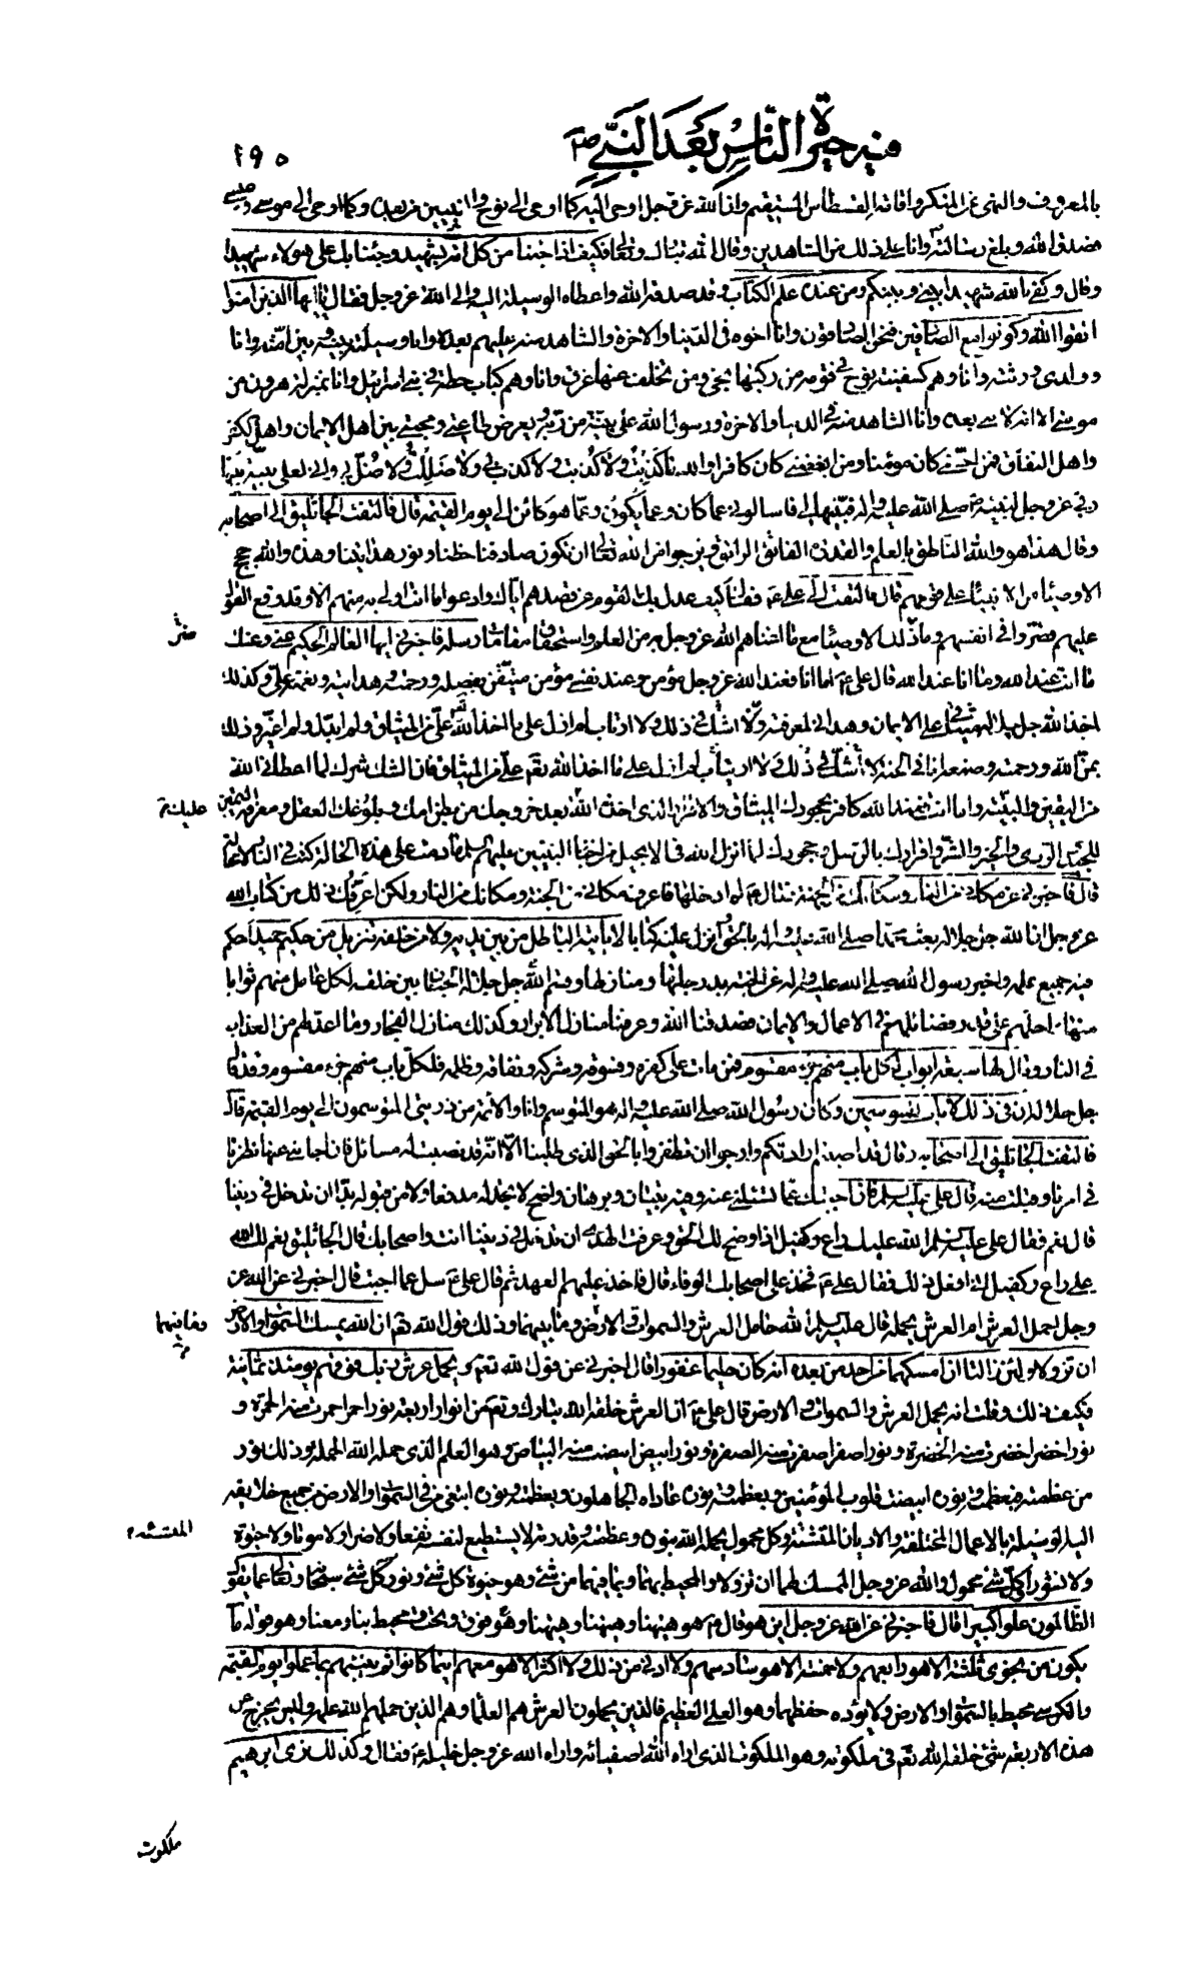 فيه حيرة الناس بعد النبي ص
٢٩٥
بالمعروف والنهى عن المنكر واقامة القسطاس المستقيم وان الله عز وجل اوحى اليه كما اوحى الى نوح والنبيين من بعده وكما اوحى الى موسى وعيسى
فصدق الله وبلغ رسالته وانا على ذلك من الشاهدين وقال الله تبارك وتعالى فكيف اذا جئنا من كل امة بشهيد وجئنا بك على هؤلاء شهيدا
وقال وكفى بالله شهيدا بينى وبينكم ومن عنده علم الكتاب وقد صدقه الله واعطاه الوسيلة اليه والى الله عز وجل فقال يا ايها الذين امنوا
اتقوا الله وكونوا مع الصادقين فنحن الصادقون وانا اخوه فى الدنيا والاخرة والشاهد منه عليهم بعده وانا وسيلته بينه وبين امته وانا
وولدى ورثته وانا وهم كسفينة نوح فى قومه من ركبها نجى ومن تخلف عنها غرق وانا وهم كباب حطة فى بنى اسرائيل وانا بمنزلة هرون من
موسى الا انه لا نبى بعده وانا الشاهد منه فى الدنيا والاخرة ورسول الله على بينة من ربه ويعرض طاعتى ومحبتى بين اهل الايمان واهل الكفر
واهل النفاق فمن احبنى كان مؤمنا ومن ابغضنى كان كافرا والله ما كذبت ولا كذبت ولا كذب بى ولا ضللت ولا ضل بى وانى لعلى بينة بينها
ربى عز وجل لنبيه صلى الله عليه واله فبينها لى فاسالونى عما كان وعما يكون وعما هو كائن الى يوم القيمة قال فالتفت الجاثليق الى اصحابه
وقال هذا هو والله الناطق بالعلم والقدرة الفاتق الراتق ونرجو من الله تعالى ان نكون صادفنا حظنا ونور هدايتنا وهذه والله حجج
الاوصياء من الانبياء على قومهم قال فالتفت الى على ع فقال كيف عدل بك القوم عن قصدهم اياك وادعوا ما انت اولى به منهم الا وقد وقع القول
عليهم فضروا فى انفسهم وما ذلك الاوصياء مع ما اغناهم الله عز وجل به من العلم واستحقاق مقامات رسله فاخبرنى ايها العالم الحكيم عنى وعنك
ضر
ما انت عند الله وما انا عند الله قال على ع اما انا فعند الله عز وجل مؤمن وعند نفسى مؤمن متيقن بفضله ورحمته وهدايته ونعمه على وكذلك
اخذ الله جل جلاله ميثاقى على الايمان وهدانى لمعرفته ولا اشك فى ذلك ولا ارتاب لم ازل على ما اخذ الله تعالى على من الميثاق ولم ابدل ولم اغير وذلك
بمن الله ورحمته وصنعه انا فى الجنة لا اشك فى ذلك ولا ارتاب لم ازل على ما اخذ الله تعم على من الميثاق فان الشك شرك لما اعطانى الله
من اليقين والبينة واما انت فعند الله كافر بجحودك الميثاق والاقرار الذى اخذه الله بعد خروجك من بطن امك وبلوغك العقل ومعرفة التمييز
عليك
للجيد والردى والخير والشر واقرارك بالرسل وجحودك لما انزل الله فى الانجيل من اخبار النبيين عليهم السلم ما دمت على هذه الحالة كنت فى النار لا محالة
قال فاخبرنى عن مكانى من النار ومكانك من الجنة فقال ع لم ادخلها فاعرف مكانى من الجنة ومكانك من النار ولكن اعرفك ذلك من كتاب الله
عز وجل ان الله جل جلاله بعث محمدا صلى الله عليه واله بالحق وانزل عليه كتابا لا ياتيه الباطل من بين يديه ولا من خلفه تنزيل من حكيم حميد احكم
فيه جميع علمه واخبر رسول الله صلى الله عليه واله عن الجنة بدرجاتها ومنازلها وقسم الله جل جلاله الجنان بين خلقه لكل عامل منهم ثوابا
منها واحلهم على قدر فضائلهم فى الاعمال والايمان فصدقنا الله وعرفنا منازل الابرار وكذلك منازل الفجار وما اعد لهم من العذاب
فى النار وقال لها سبعة ابواب لكل باب منهم جزء مقسوم فمن مات على كفره وفسوقه وشركه ونفاقه وظلمه فلكل باب منهم جزء مقسوم وقد قال
جل جلاله ان فى ذلك لايات للمتوسمين وكان رسول الله صلى الله عليه واله هو المتوسم وانا والائمة من ذريتى المتوسمون الى يوم القيمة قال
فالتفت الجاثليق الى اصحابه وقال قد اصبتم ارادتكم وارجوا ان تظفروا بالحق الذى طلبنا الا انه قد نصبت له مسائل فان اجابنى عنها نظرنا
فى امرنا وقبلت منه قال على عليه السلم فان اجبتك عما تسئلنى عنه وفيه تبيان وبرهان واضح لا تجد له مدفعا ولا من قبوله بدا ان تدخل فى ديننا
قال نعم فقال على عليه السلم الله عليك راع وكفيل اذا وضح لك الحق وعرفت الهدى ان تدخل فى ديننا انت واصحابك قال الجاثليق نعم لك الله
على راع وكفيل انى افعل ذلك فقال على ع فخذ على اصحابك الوفاء قال فاخذ عليهم العهد ثم قال على ع سل عما احببت قال اخبرنى عن الله عز
وجل احمل العرش ام العرش يحمله قال عليه السلم الله حامل العرش والسموات والارض وما بينهما وذلك قول الله تعم ان الله يمسك السموات والارض
وما فيهما
ان تزولا ولئن زالتا ان امسكهما من احد من بعده انه كان حليما غفورا قال اخبرنى عن قول الله تعم ويحمل عرش ربك فوقهم يومئذ ثمانية
فكيف ذلك وقلت انه يحمل العرش والسموات والارض قال على ع ان العرش خلقه الله تبارك وتعم من انوار اربعة نور احمر احمرت منه الحمرة و
نور اخضر اخضرت منه الخضرة ونور اصفر اصفرت منه الصفرة ونور ابيض ابيضت منه البياض وهو العلم الذى حمله الله الحملة وذلك نور
من عظمته فبعظمته ونوره ابيضت قلوب المؤمنين وبعظمته ونوره عاداه الجاهلون وبعظمته ونوره ابتغى من فى السموات والارض من جميع خلايقه
اليه الوسيلة بالاعمال المختلفة والاديان المتشتتة وكل محمول يحمله الله بنوره وعظمته وقدرته لا يستطيع لنفسه نفعا ولا ضرا ولا موتا ولا حيوة
ولا نشورا فكل شئ محمول والله عز وجل الممسك لهما ان تزولا والمحيط بهما وبما فيهما من شئ وهو حيوة كل شئ ونور كل شئ سبحانه وتعالى عما يقول
الظالمون علوا كبيرا قال فاخبرنى عن الله عز وجل اين هو قال ع هو هيهنا وهيهنا وهيهنا وهو فوق وتحت ومحيط بنا ومعنا وهو قوله ما
يكون من نجوى ثلثة الا هو رابعهم ولا خمسة الا هو سادسهم ولا ادنى من ذلك ولا اكثر الا هو معهم اينما كانوا ثم ينبئهم بما عملوا يوم القيمة
والكرسى محيط بالسموات والارض ولا يؤده حفظهما وهو العلى العظيم فالذين يحملون العرش هم العلماء وهم الذين حملهم الله علمه وليس يخرج عن
هذه الاربعة شئ خلقه الله تعم فى ملكوته وهو الملكوت الذى اراه الله اصفيائه واراه الله عز وجل خليله ع فقال وكذلك نرى ابرهيم
ملكوت